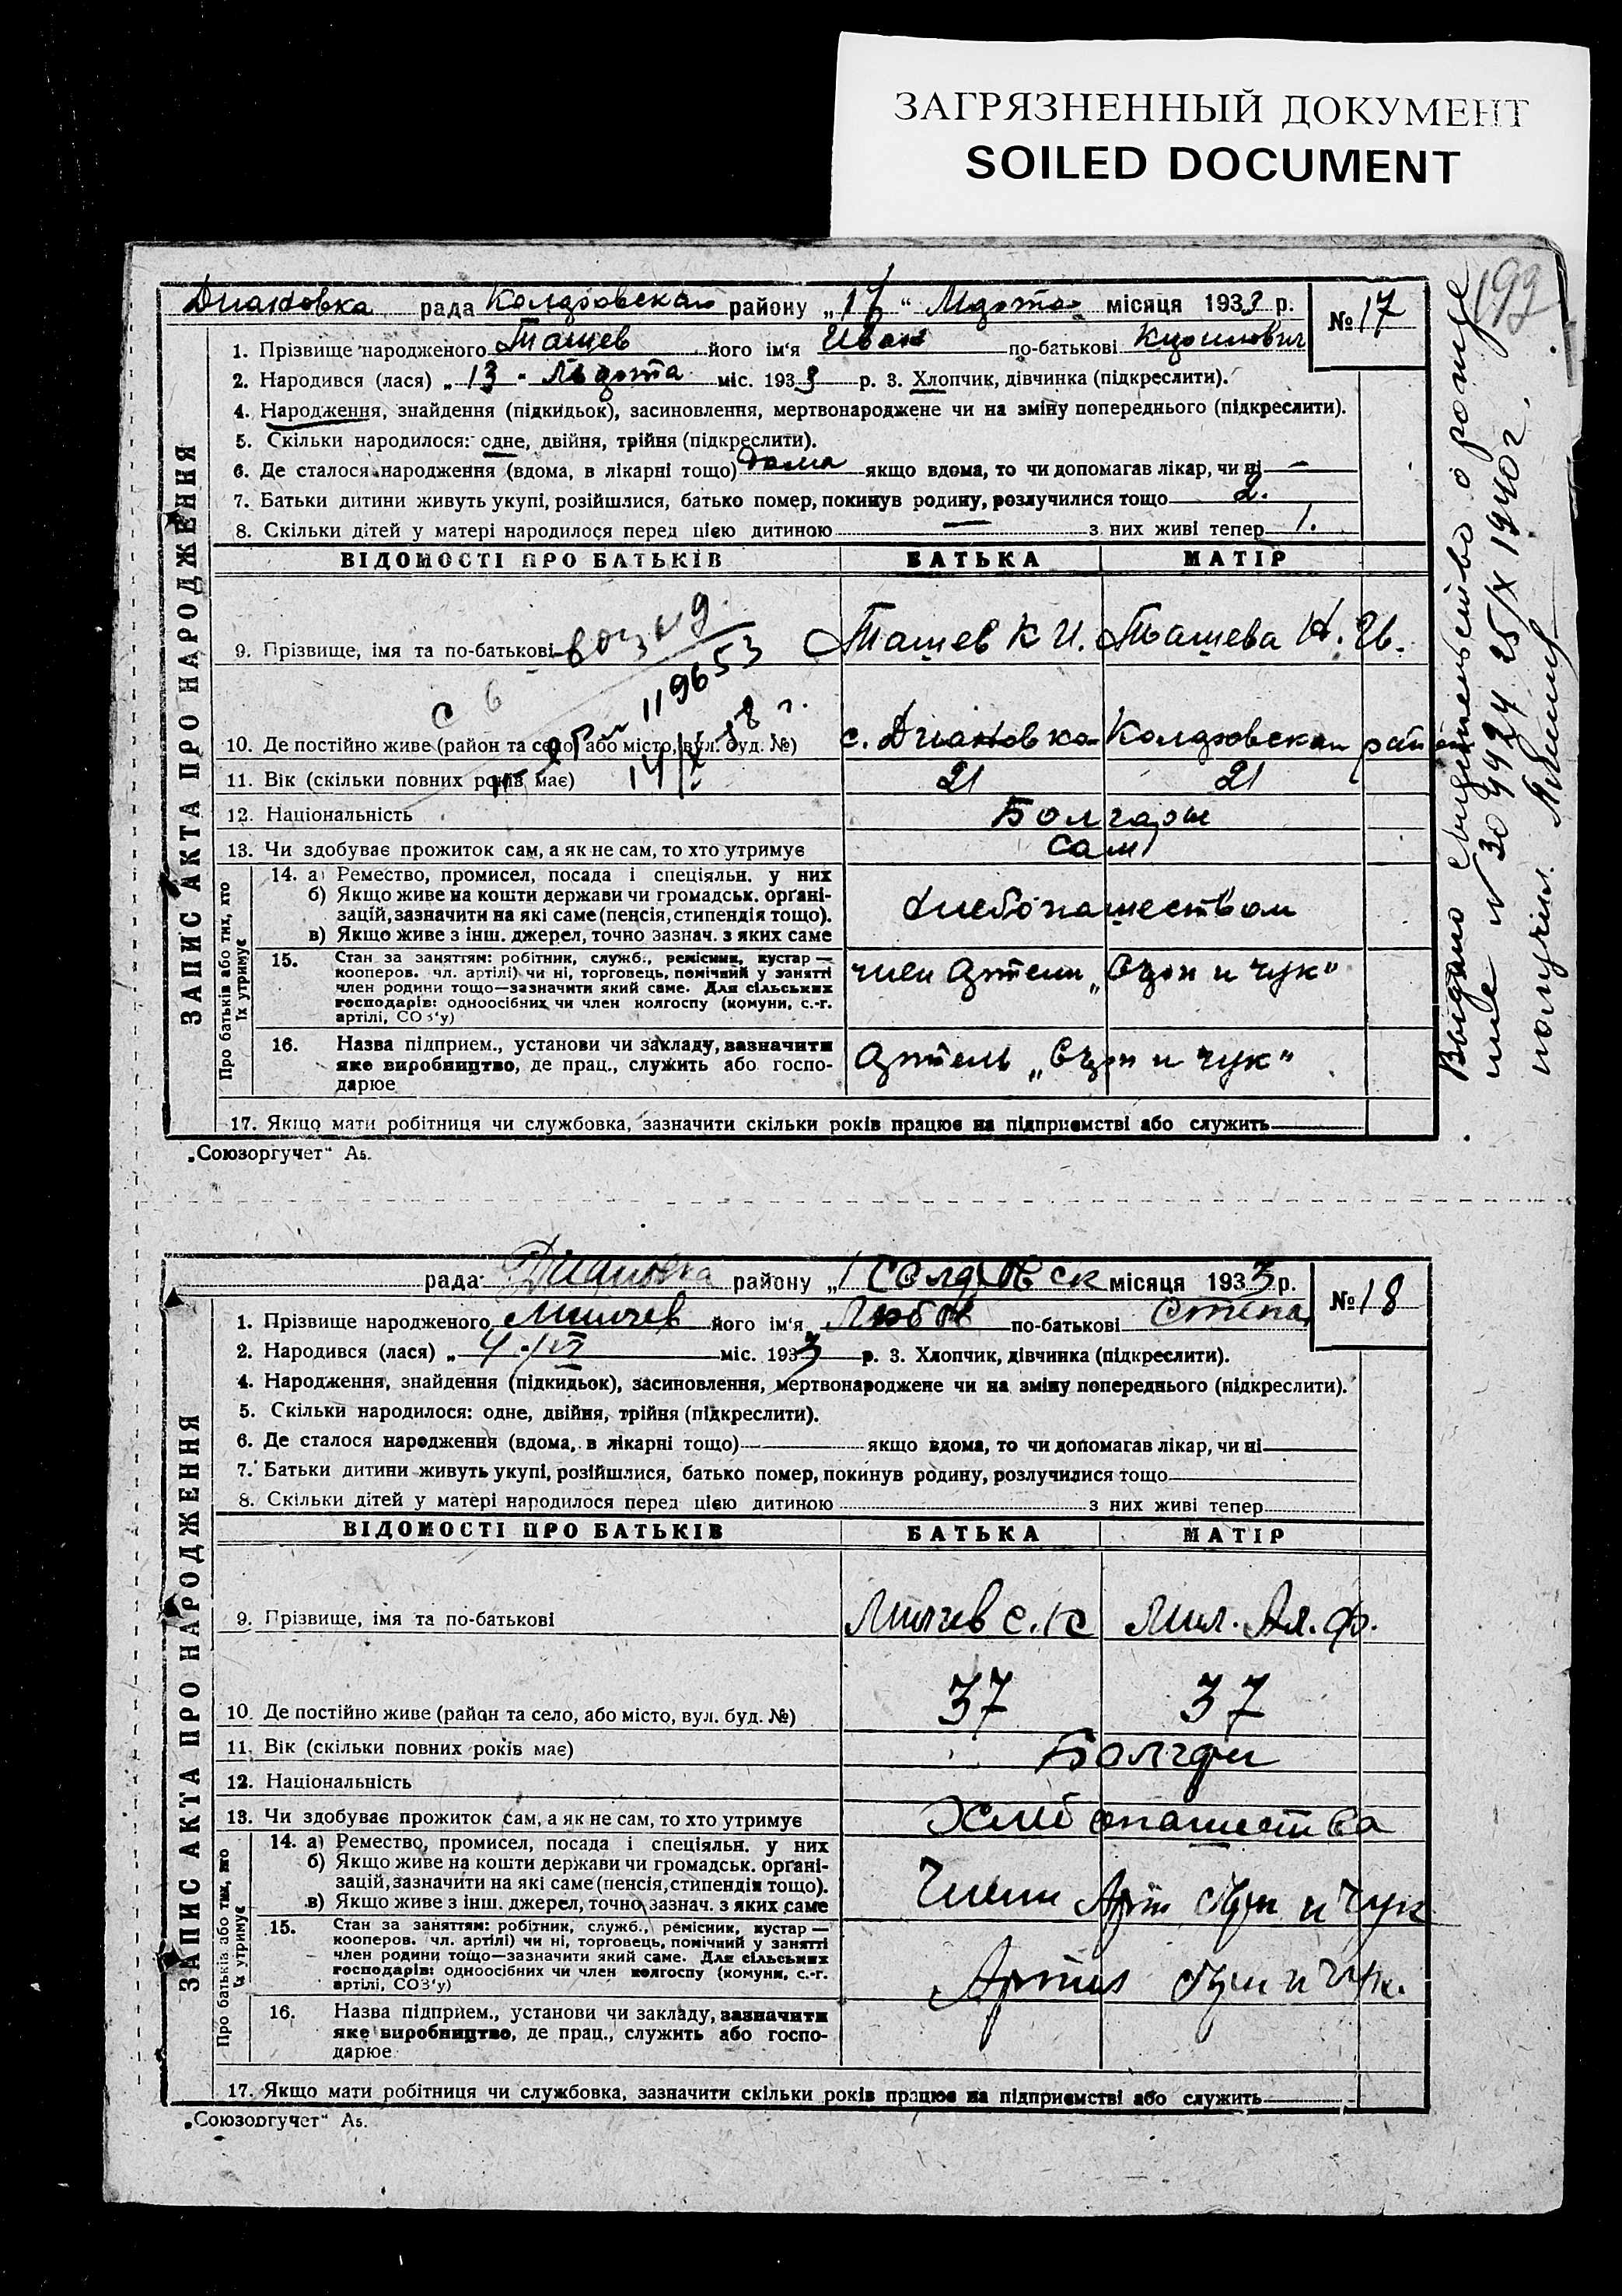 ЗАГРЯЗНЕННЫЙ ДОКУМЕНТ
SOILED DOCUMENT
199
Диановка рада Колдровская району „17“ Марта місяця 1933 р. № 17
1. Прізвище народженого Ташев його ім'я Иван по-батькові
2. Народився (лася) „13 Марта міс. 1933 р. 3. Хлопчик, дівчинка (підкреслити).
4. Народження, знайдення (підкидьок), засиновлення, мертвонароджене чи на зміну попереднього (підкреслити).
5. Скільки народилося: одне, двійня, трійня (підкреслити).
6. Де сталося народження (вдома, в лікарні тощо) дома якщо вдома, то чи допомагав лікар, чи ні —
7. Батьки дитини живуть укупі, розійшлися, батько помер, покинув родину, розлучилися тощо 2.
8. Скільки дітей у матері народилося перед цією дитиною — з них живі тепер 1.
ЗАПИС АКТА ПРО НАРОДЖЕННЯ
ВІДОМОСТІ ПРО БАТЬКІВ БАТЬКА МАТІР
9. Прізвище, імя та по-батькові Ташев К И. Ташева Н. Ив.
119653
10. Де постійно живе (район та село, або місто, вул. буд. №) с. Диановка Колдровская район
11. Вік (скільки повних років має) 21 21
12. Національність Болгары
13. Чи здобуває прожиток сам, а як не сам, то хто утримує Сам
Про батьків або тих, хто їх утримує
14. а) Ремество, промисел, посада і спеціяльн. у них
б) Якщо живе на кошти держави чи громадськ. органі-
зацій, зазначити на які саме (пенсія, стипендія тощо).
в) Якщо живе з інш. джерел, точно зазнач. з яких саме
хлебопашеством
15. Стан за заняттям: робітник, служб., ремісник, кустар —
кооперов. чл. артілі) чи ні, торговець, помічний у занятті
член родини тощо—зазначити який саме. Для сільських
господарів: одноосібних чи член колгоспу (комуни, с.-г.
артілі, СОЗ'у)
член артели „ и чук“
16. Назва підприєм., установи чи закладу, зазначити
яке виробництво, де прац., служить або госпо-
дарює
артель „ и чук“
17. Якщо мати робітниця чи службовка, зазначити скільки років працює на підприємстві або служить
„Союзоргучет“ А5.
Выдано свидетельство о рожде
ние № 304424 25/X 1940 г.
получил.
рада Диановка району „ місяця 1933 р. № 18
1. Прізвище народженого Милчев його ім'я Любов по-батькові Степа
2. Народився (лася) „ 4 VI міс. 1933 р. 3. Хлопчик, дівчинка (підкреслити).
4. Народження, знайдення (підкидьок), засиновлення, мертвонароджене чи на зміну попереднього (підкреслити).
5. Скільки народилося: одне, двійня, трійня (підкреслити).
6. Де сталося народження (вдома, в лікарні тощо) якщо вдома, то чи допомагав лікар, чи ні
7. Батьки дитини живуть укупі, розійшлися, батько помер, покинув родину, розлучилися тощо
8. Скільки дітей у матері народилося перед цією дитиною з них живі тепер
ЗАПИС АКТА ПРО НАРОДЖЕННЯ
ВІДОМОСТІ ПРО БАТЬКІВ БАТЬКА МАТІР
9. Прізвище, імя та по-батькові Милчев С. К Мил. Ал. Ф.
10. Де постійно живе (район та село, або місто, вул. буд. №) 37 37
11. Вік (скільки повних років має) Болгары
12. Національність
13. Чи здобуває прожиток сам, а як не сам, то хто утримує Хлебопашества
Про батьків або тих, хто їх утримує
14. а) Ремество, промисел, посада і спеціяльн. у них
б) Якщо живе на кошти держави чи громадськ. органі-
зацій, зазначити на які саме (пенсія, стипендія тощо).
в) Якщо живе з інш. джерел, точно зазнач. з яких саме
Члени Арт и Чук
15. Стан за заняттям: робітник, служб., ремісник, кустар —
кооперов. чл. артілі) чи ні, торговець, помічний у занятті
член родини тощо—зазначити який саме. Для сільських
господарів: одноосібних чи член колгоспу (комуни, с.-г.
артілі, СОЗ'у)
и Чук.
16. Назва підприєм., установи чи закладу, зазначити
яке виробництво, де прац., служить або госпо-
дарює
17. Якщо мати робітниця чи службовка, зазначити скільки років працює на підприємстві або служить
„Союзоргучет“ А5.